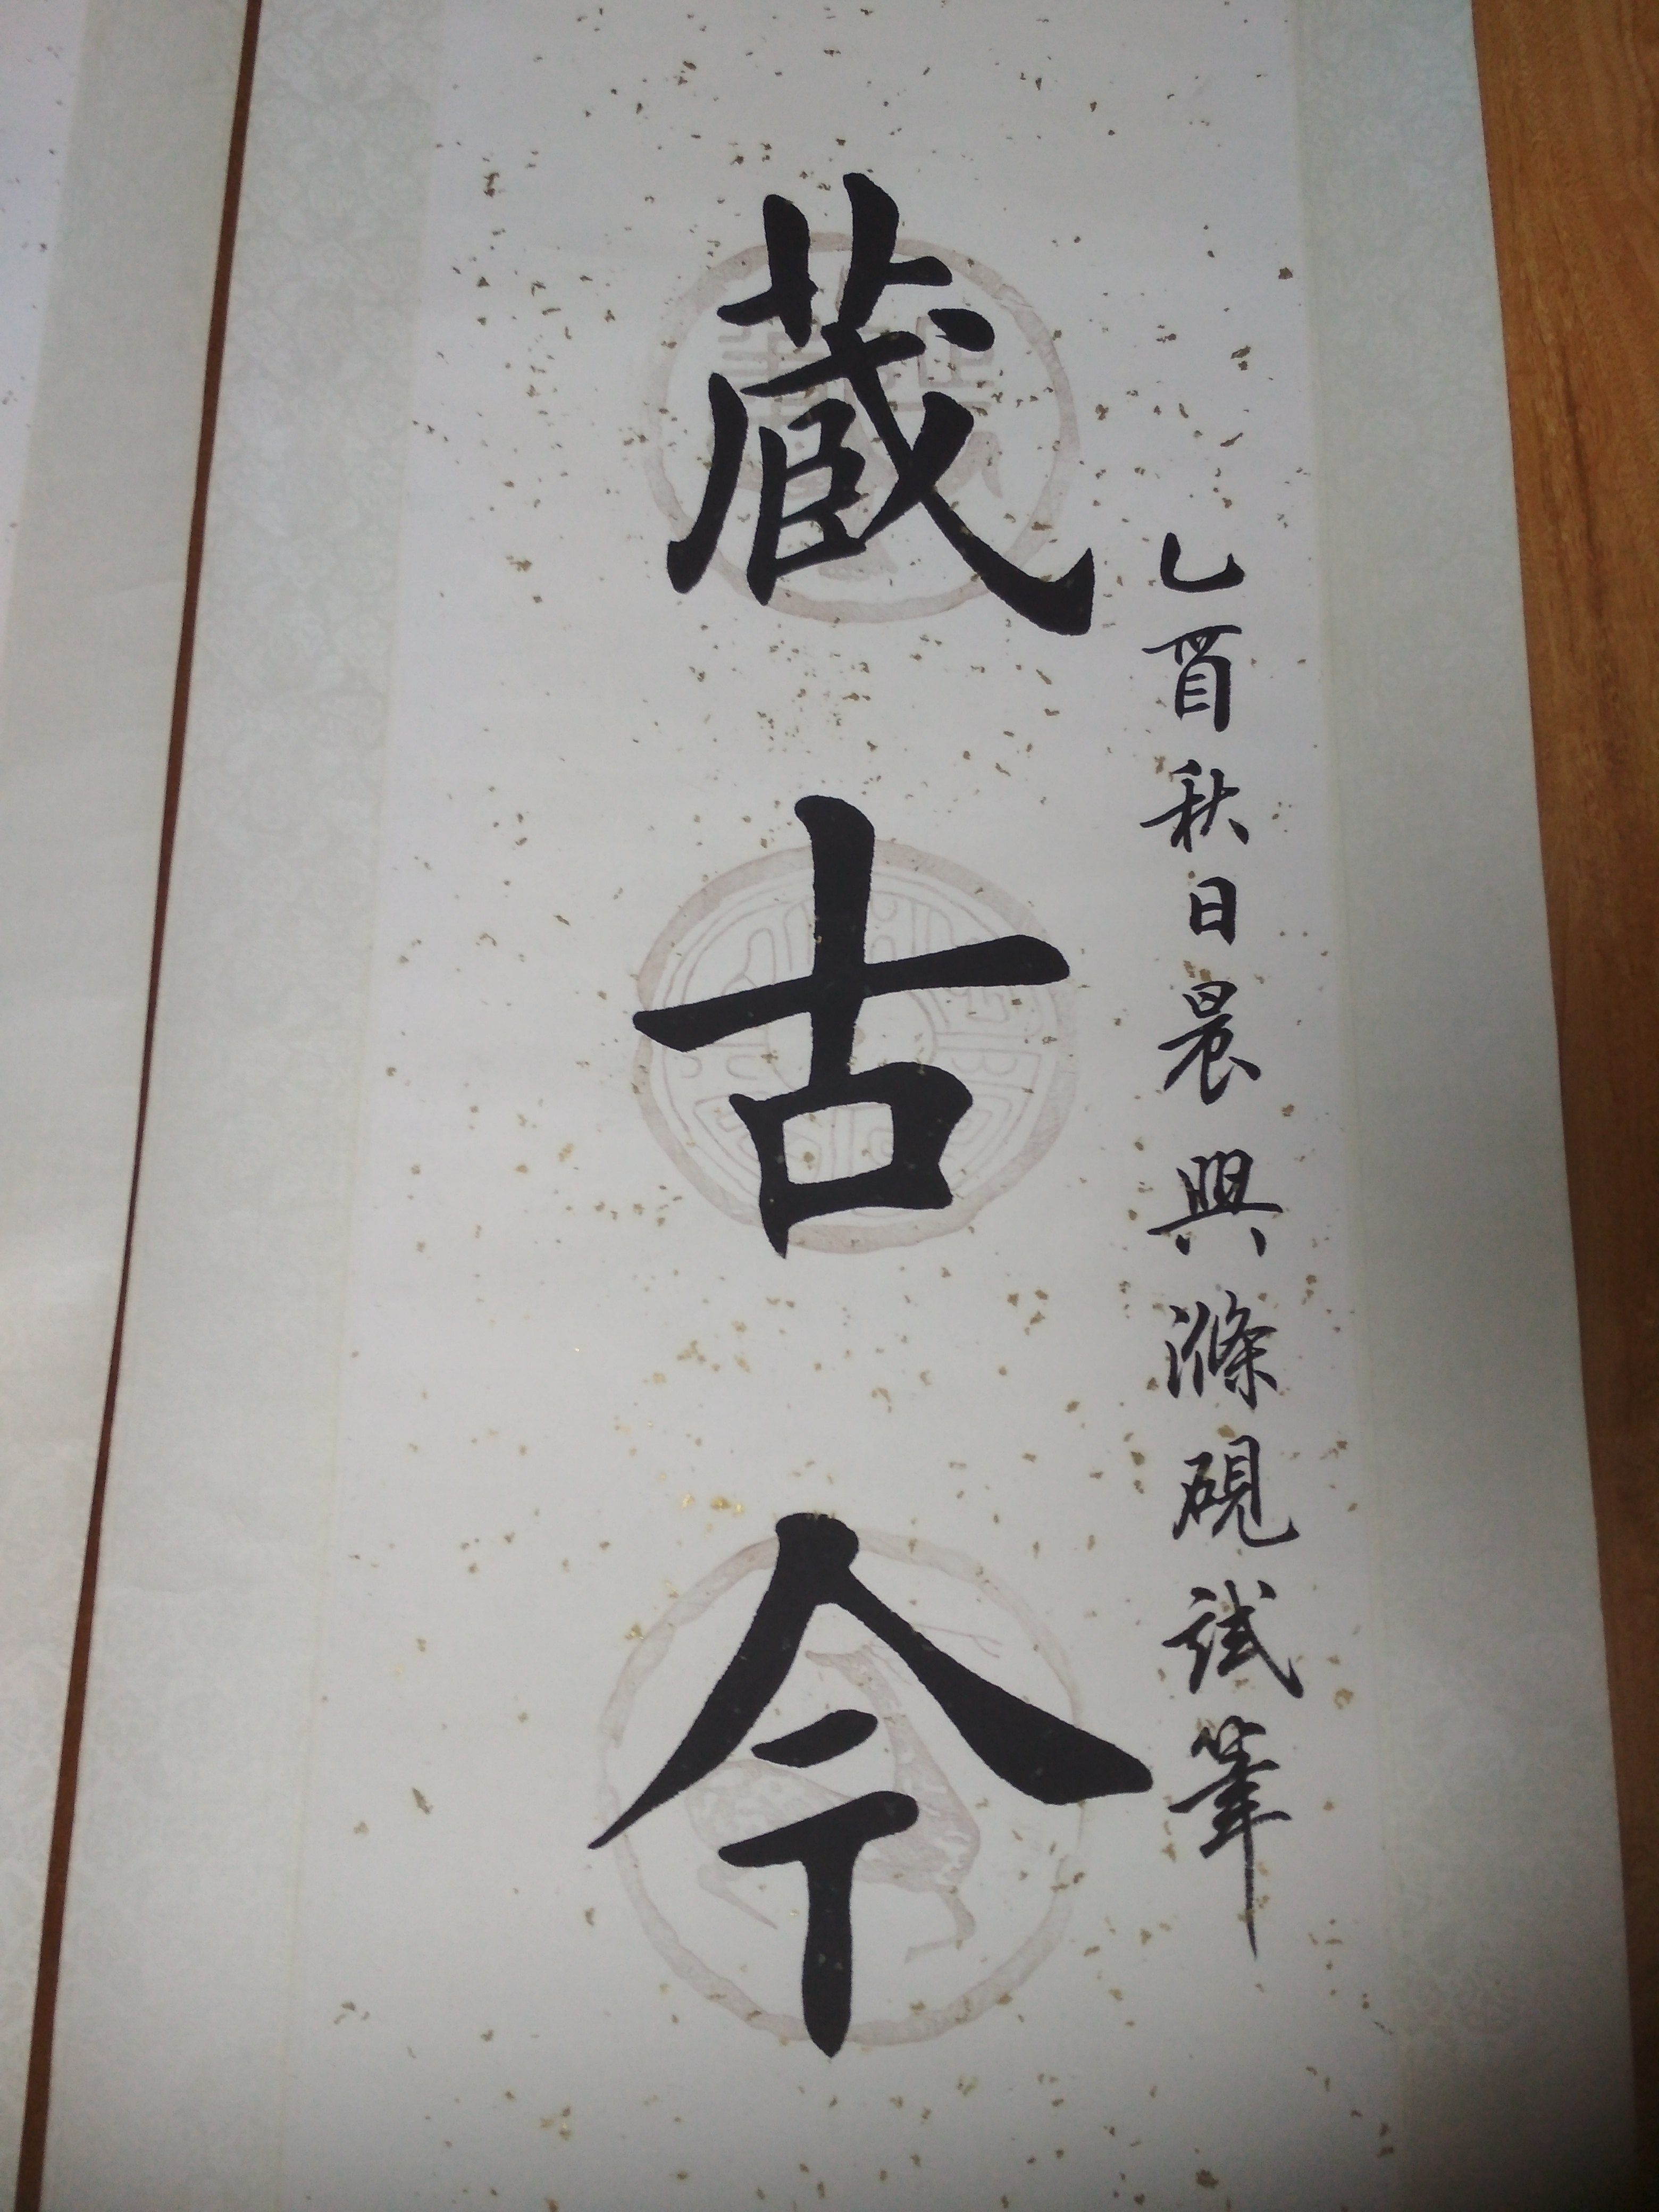 乙酉秋日晨興滌硯試筆
藏古今